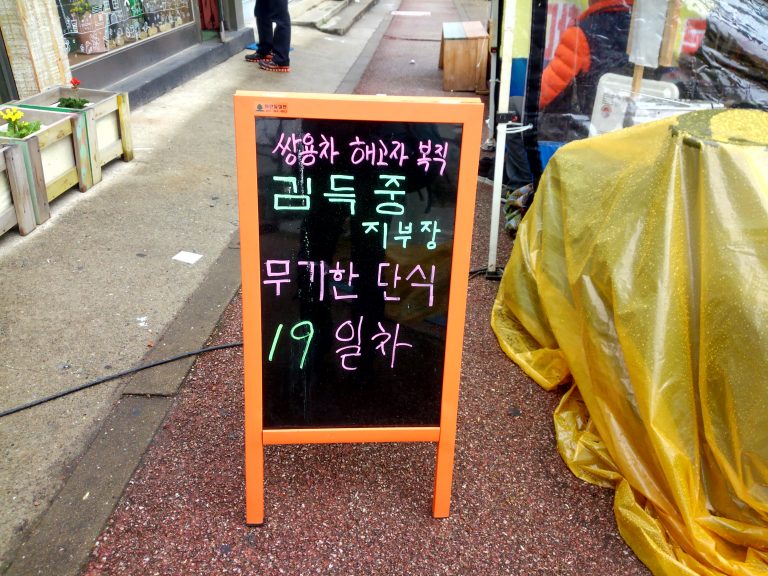 쌍용차 해고자 복직
김득중
지부장
무기한 단식
19일차